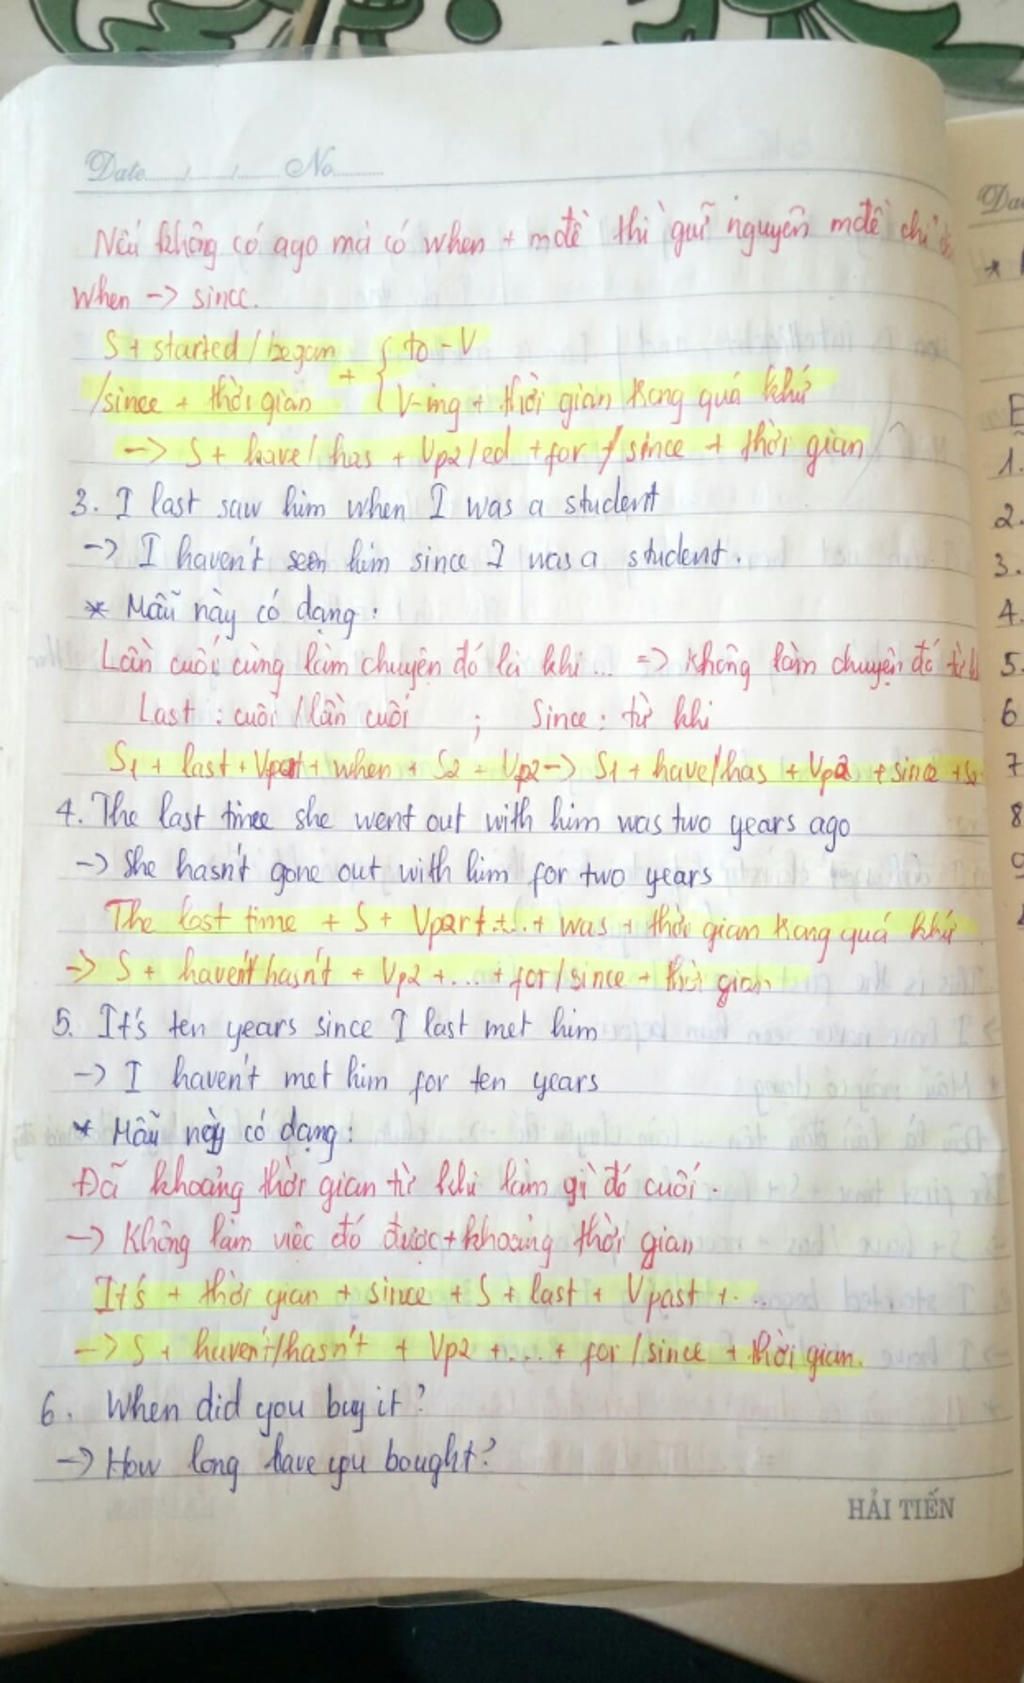 Date....../....../...... No..........
Nếu không có ago mà có when + mđề thì giữ nguyên mđề chỉ
When -> since.
S + started / began + { to - V
/since + thời gian { V-ing + thời gian trong quá khứ
-> S + have / has + Vp2/ed + for / since + thời gian
3. I last saw him when I was a student
-> I haven't seen him since I was a student.
* Mẫu này có dạng:
Lần cuối cùng làm chuyện đó là khi ... => Không làm chuyện đó từ
Last : cuối / lần cuối ; Since : từ khi
S1 + last + Vpast + when + S2 + Vp2 -> S1 + have/has + Vp2 + since + S2
4. The last time she went out with him was two years ago
-> She hasn't gone out with him for two years
The last time + S + Vpart + ... + was + thời gian trong quá khứ
-> S + haven't hasn't + Vp2 + ... + for / since + thời gian
5. It's ten years since I last met him
-> I haven't met him for ten years
* Mẫu này có dạng:
Đã khoảng thời gian từ khi làm gì đó cuối.
-> Không làm việc đó được + khoảng thời gian
It's + thời gian + since + S + last + Vpast + ...
-> S + haven't/hasn't + Vp2 + ... + for / since + thời gian.
6. When did you buy it?
-> How long have you bought?
HẢI TIẾN
1.
2.
3.
4.
5.
6
7
8